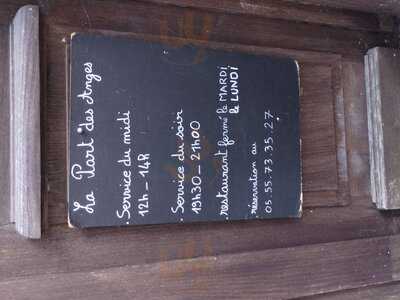 La Part des Anges
. Service du midi
12h - 14h
. Service du soir
19h30 - 21h00
. restaurant fermé le MARDI
le LUNDI
. réservation au
05.55.73.35.27